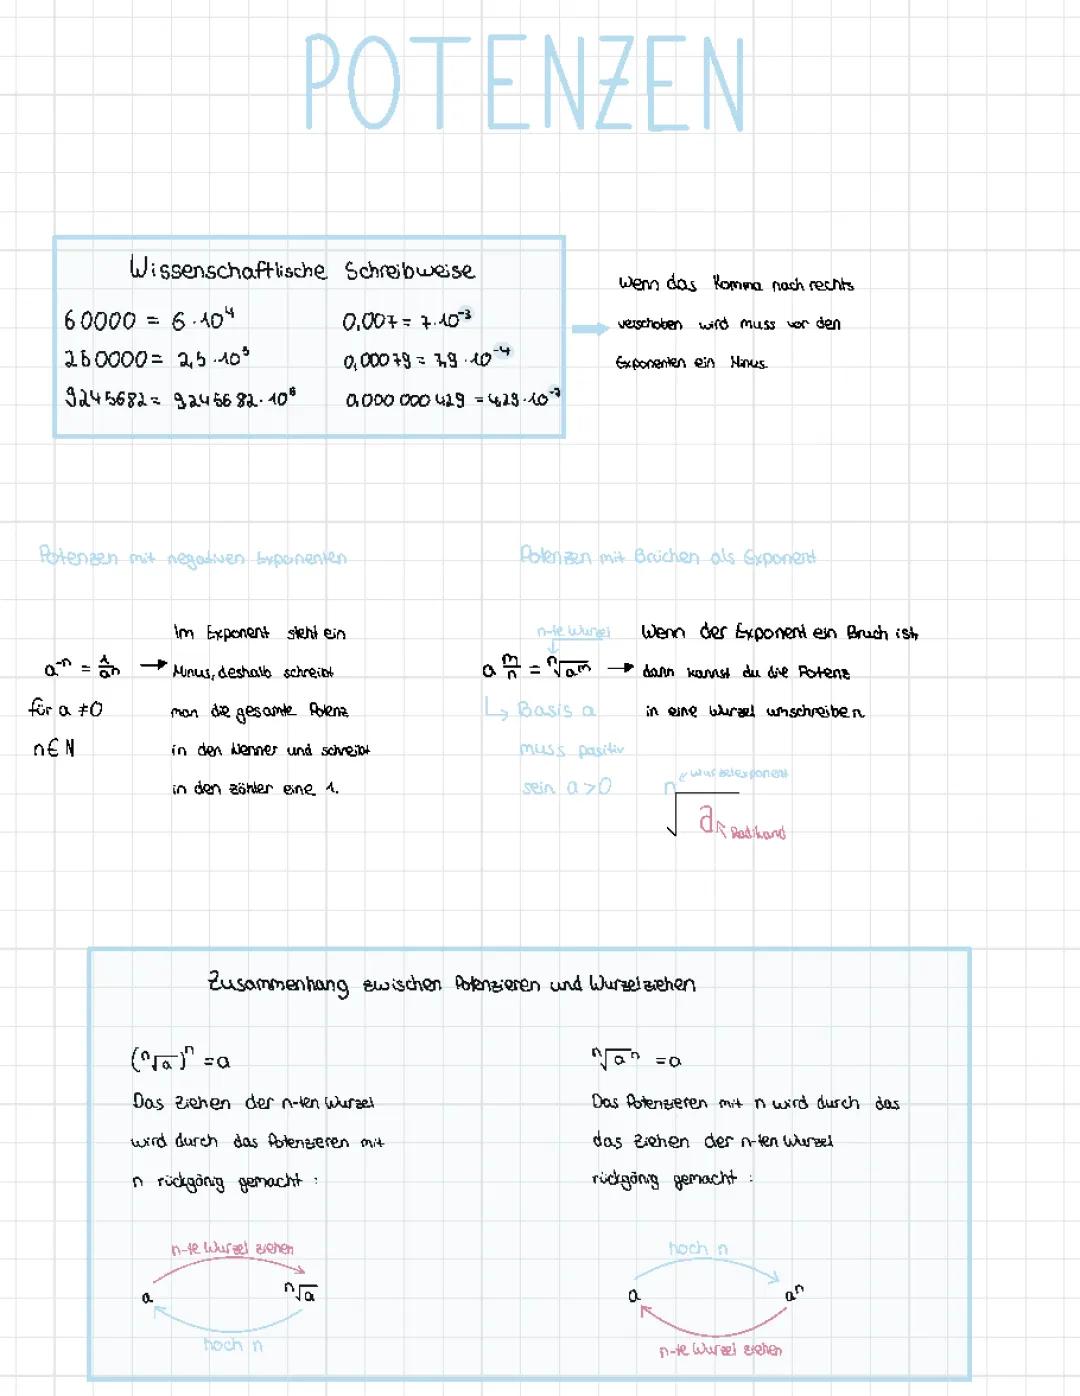 POTENZEN
Wissenschaftlische Schreibweise
60000 = 6 · 10⁴
0,007 = 7 · 10⁻³
250000 = 2,5 · 10⁵
0,00079 = 7,9 · 10⁻⁴
9245682 = 9,245682 · 10⁶
0,000 000 429 = 4,29 · 10⁻⁷
Wenn das Komma nach rechts
verschoben wird muss vor den
Exponenten ein Minus.
Potenzen mit negativen Exponenten
a⁻ⁿ = 1/aⁿ →
für a ≠ 0
n ∈ N
Im Exponent steht ein
Minus, deshalb schreibt
man die gesamte Potenz
in den Nenner und schreibt
in den Zähler eine 1.
Potenzen mit Brüchen als Exponent
n-te Wurzel
a^(m/n) = ⁿ√aᵐ →
↳ Basis a
muss positiv
sein a > 0
Wenn der Exponent ein Bruch ist,
dann kannst du die Potenz
in eine Wurzel umschreiben
Wurzelexponent
ⁿ√a
Radikand
Zusammenhang zwischen Potenzieren und Wurzelziehen
(ⁿ√a)ⁿ = a
Das Ziehen der n-ten Wurzel
wird durch das Potenzieren mit
n rückgänig gemacht :
n-te Wurzel ziehen
a ⁿ√a
hoch n
ⁿ√aⁿ = a
Das Potenzieren mit n wird durch das
das Ziehen der n-ten Wurzel
rückgänig gemacht :
hoch n
a aⁿ
n-te Wurzel ziehen